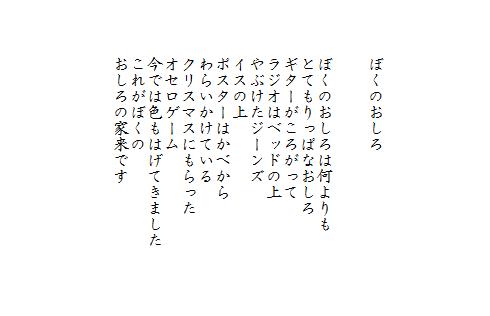 ぼくのおしろ
ぼくのおしろは何よりも
とてもりっぱなおしろ
ギターがころがって
ラジオはベッドの上
やぶけたジーンズ
イスの上
ポスターはかべから
わらいかけている
クリスマスにもらった
オセロゲーム
今では色もはげてきました
これがぼくの
おしろの家来です